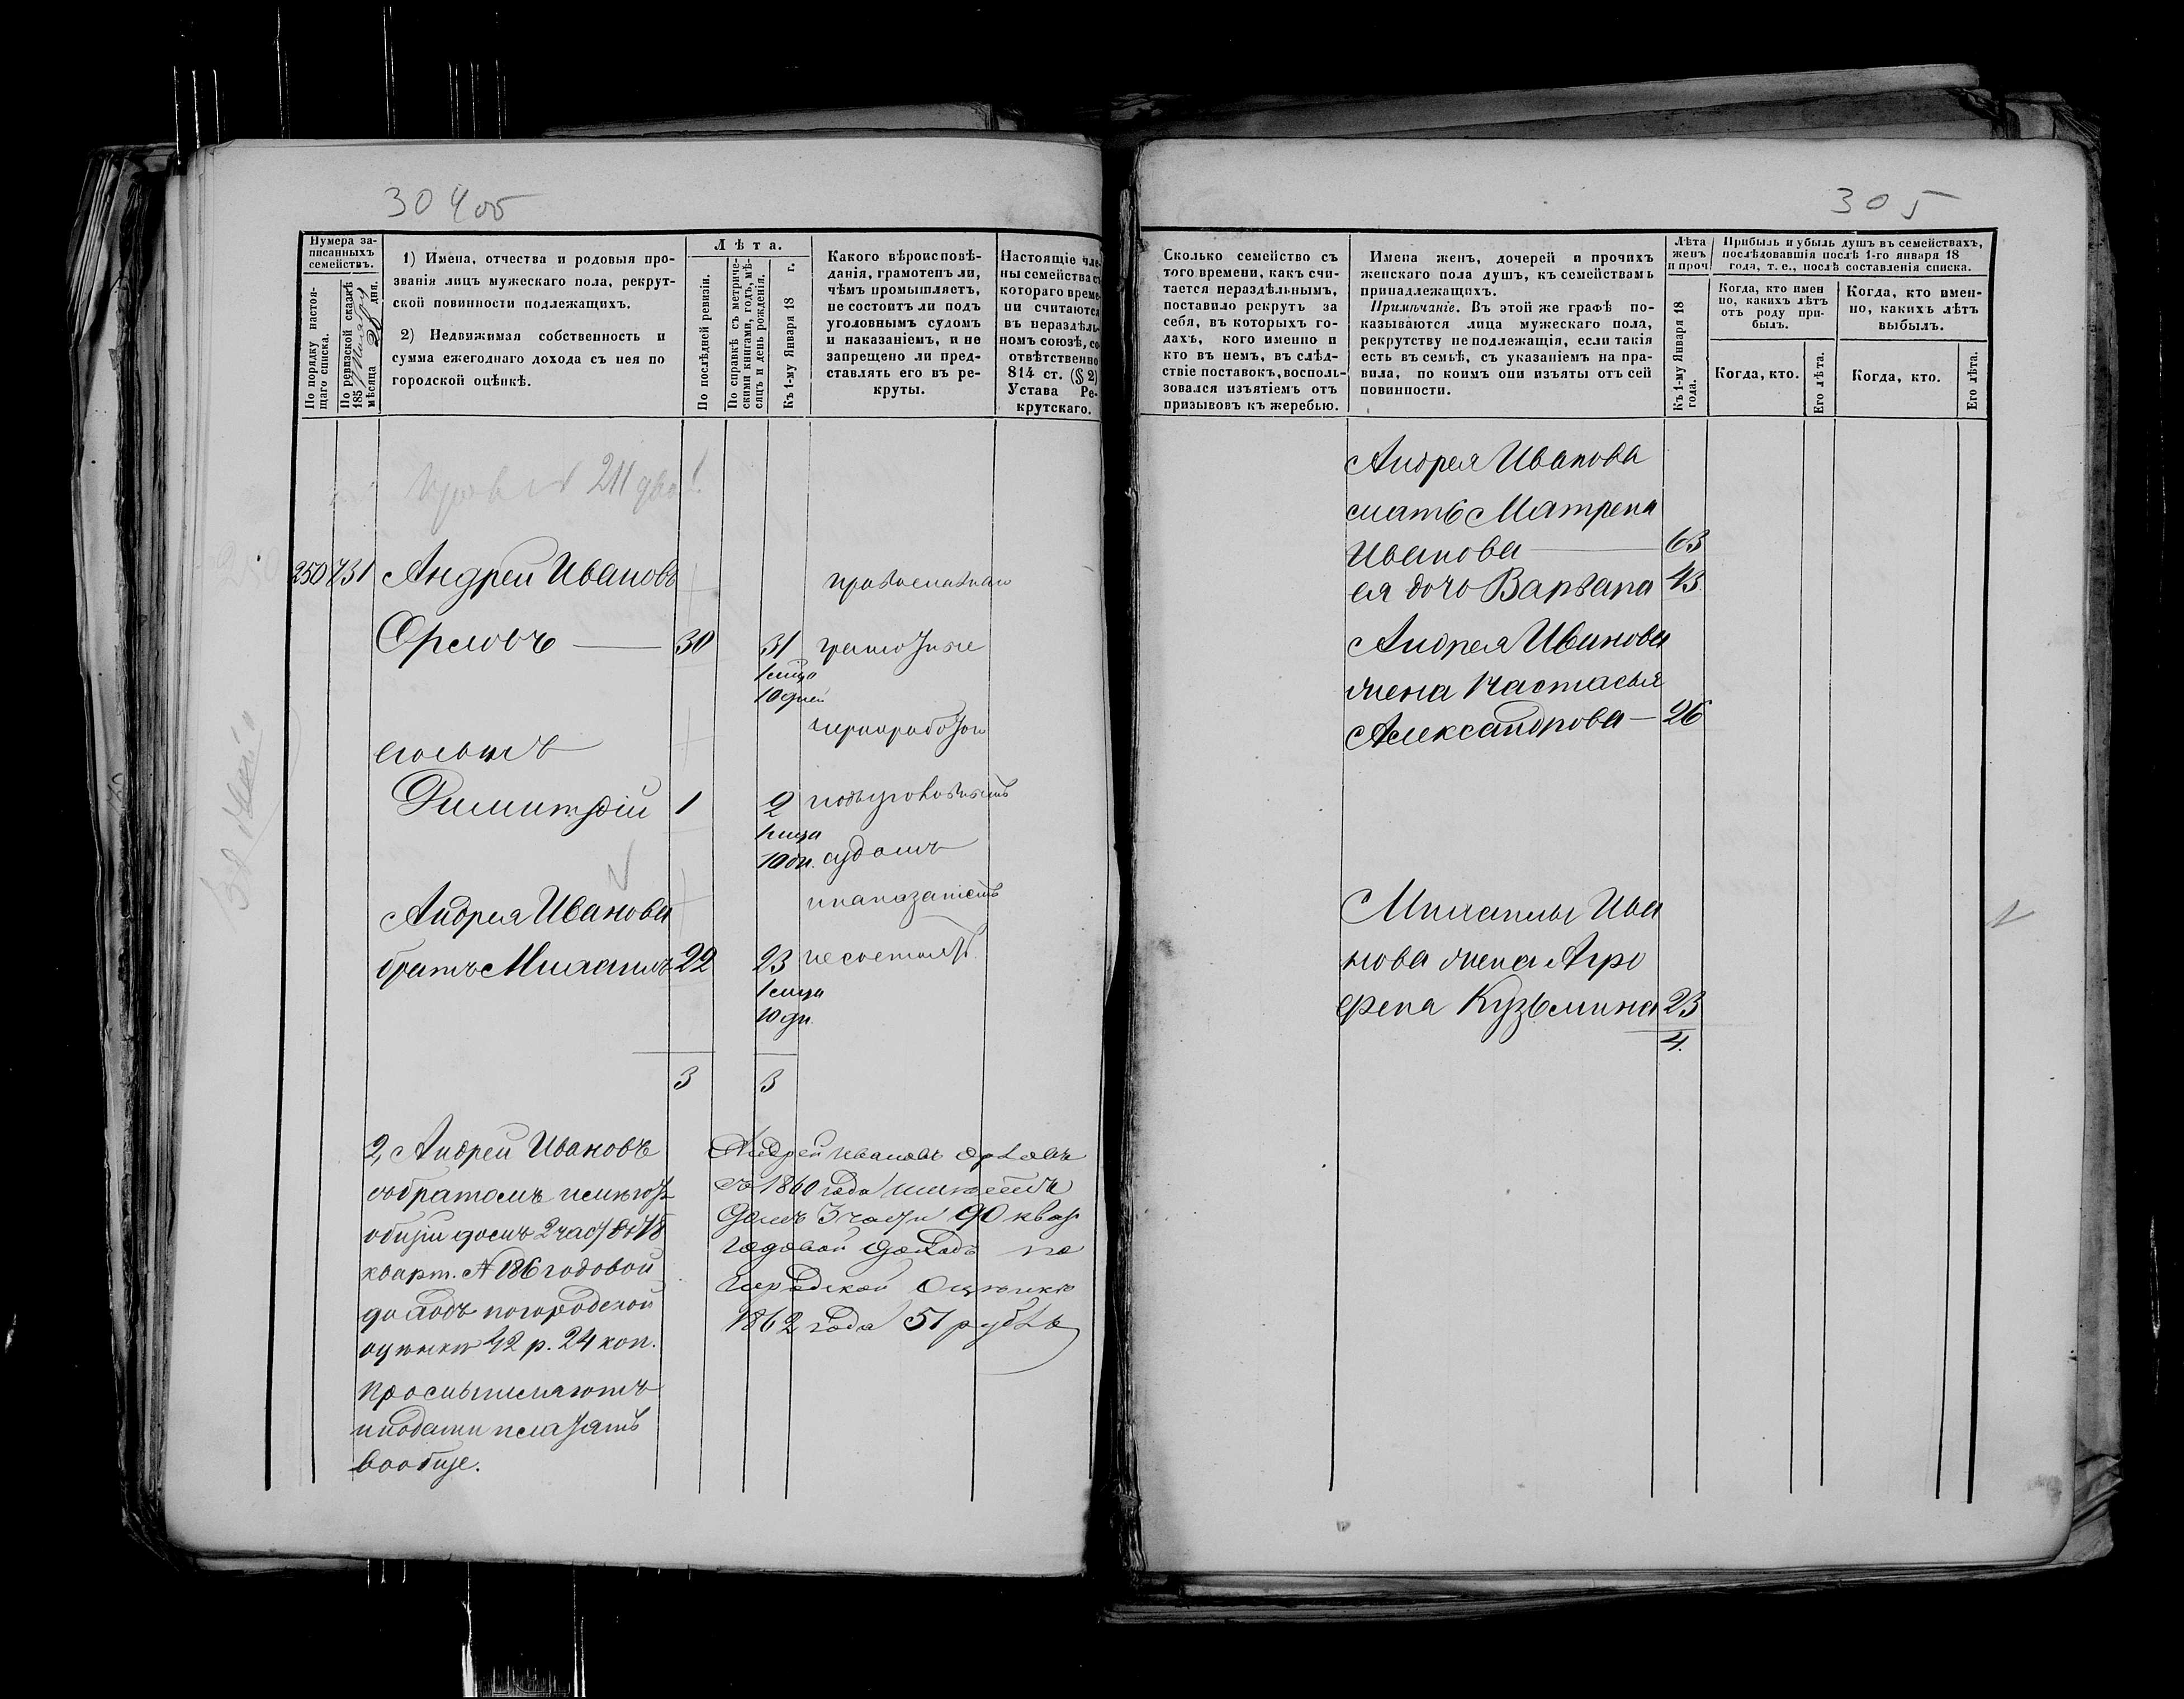 304об
305
Нумера за-
писанныхъ
семействъ.
По порядку настоя-
щаго списка.
По ревизской сказкѣ
185 7 Генваря
мѣсяца 28 дня.
1) Имена, отчества и родовыя про-
званія лицъ мужескаго пола, рекрут-
ской повинности подлежащихъ.
2) Недвижимая собственность и
сумма ежегоднаго дохода съ нея по
городской оцѣнкѣ.
Лѣта.
По послѣдней ревизіи.
По справкѣ съ метриче-
скими книгами, годъ, мѣ-
сяцъ и день рожденія.
Къ 1-му Января 18 г.
Какого вѣроисповѣ-
данія, грамотенъ ли,
чѣмъ промышляетъ,
не состоитъ ли подъ
уголовнымъ судомъ
и наказаніемъ, и не
запрещено ли пред-
ставлять его въ ре-
круты.
Настоящіе чле-
ны семейства съ
котораго време-
ни считаются
въ нераздѣль-
номъ союзѣ, со-
отвѣтственно
814 ст. (§ 2)
Устава Ре-
крутскаго.
211
250 731 Андрей Ивановъ
православнаго
Орловъ — 30 31 грамотные
1 мца
10 дней
чернорабочіе
его сынъ
Димитрій 1 2 подъ уголовнымъ
1 мца
10 дн. судомъ
Андрея Иванова
и наказаніемъ
братъ Михаилъ 22 23 не состоятъ.
1 мца
10 дн.
3 3
2, Андрей Ивановъ
съ братомъ имѣютъ
общій домъ 2 част
кварт. № 186 годовой
доходъ по городской
оцѣнкѣ 42 р. 24 коп.
Промышляютъ
и подати платятъ
вообще.
Андрей Ивановъ Орловъ
съ 1860 года имѣетъ
домъ 3 части 90 кварт
годовой доходъ по
городской Оцѣнкѣ
1862 года 51 рубль
Сколько семейство съ
того времени, какъ счи-
тается нераздѣльнымъ,
поставило рекрутъ за
себя, въ которыхъ го-
дахъ, кого именно и
кто въ немъ, въ слѣд-
ствіе поставокъ, восполь-
зовался изъятіемъ отъ
призывовъ къ жеребью.
Имена женъ, дочерей и прочихъ
женскаго пола душъ, къ семействамъ
принадлежащихъ.
Примѣчаніе. Въ этой же графѣ по-
казываются лица мужескаго пола,
рекрутству не подлежащія, если такія
есть въ семьѣ, съ указаніемъ на пра-
вила, по коимъ они изъяты отъ сей
повинности.
Лѣта
женъ
и проч.
Къ 1-му Января 18
года.
Прибыль и убыль душъ въ семействахъ,
послѣдовавшія послѣ 1-го января 18
года, т. е., послѣ составленія списка.
Когда, кто имен
но, какихъ лѣтъ
отъ роду при-
былъ.
Когда, кто имен-
но, какихъ лѣтъ
выбылъ.
Когда, кто.
Его лѣта.
Когда, кто.
Его лѣта.
Андрея Иванова
мать Матрена
Иванова — 63
ея дочь Варвара 43
Андрея Иванова
жена Настасья
Александрова — 26
Михаилы Ива
нова жена Агро
фена Кузьмина 23
4.